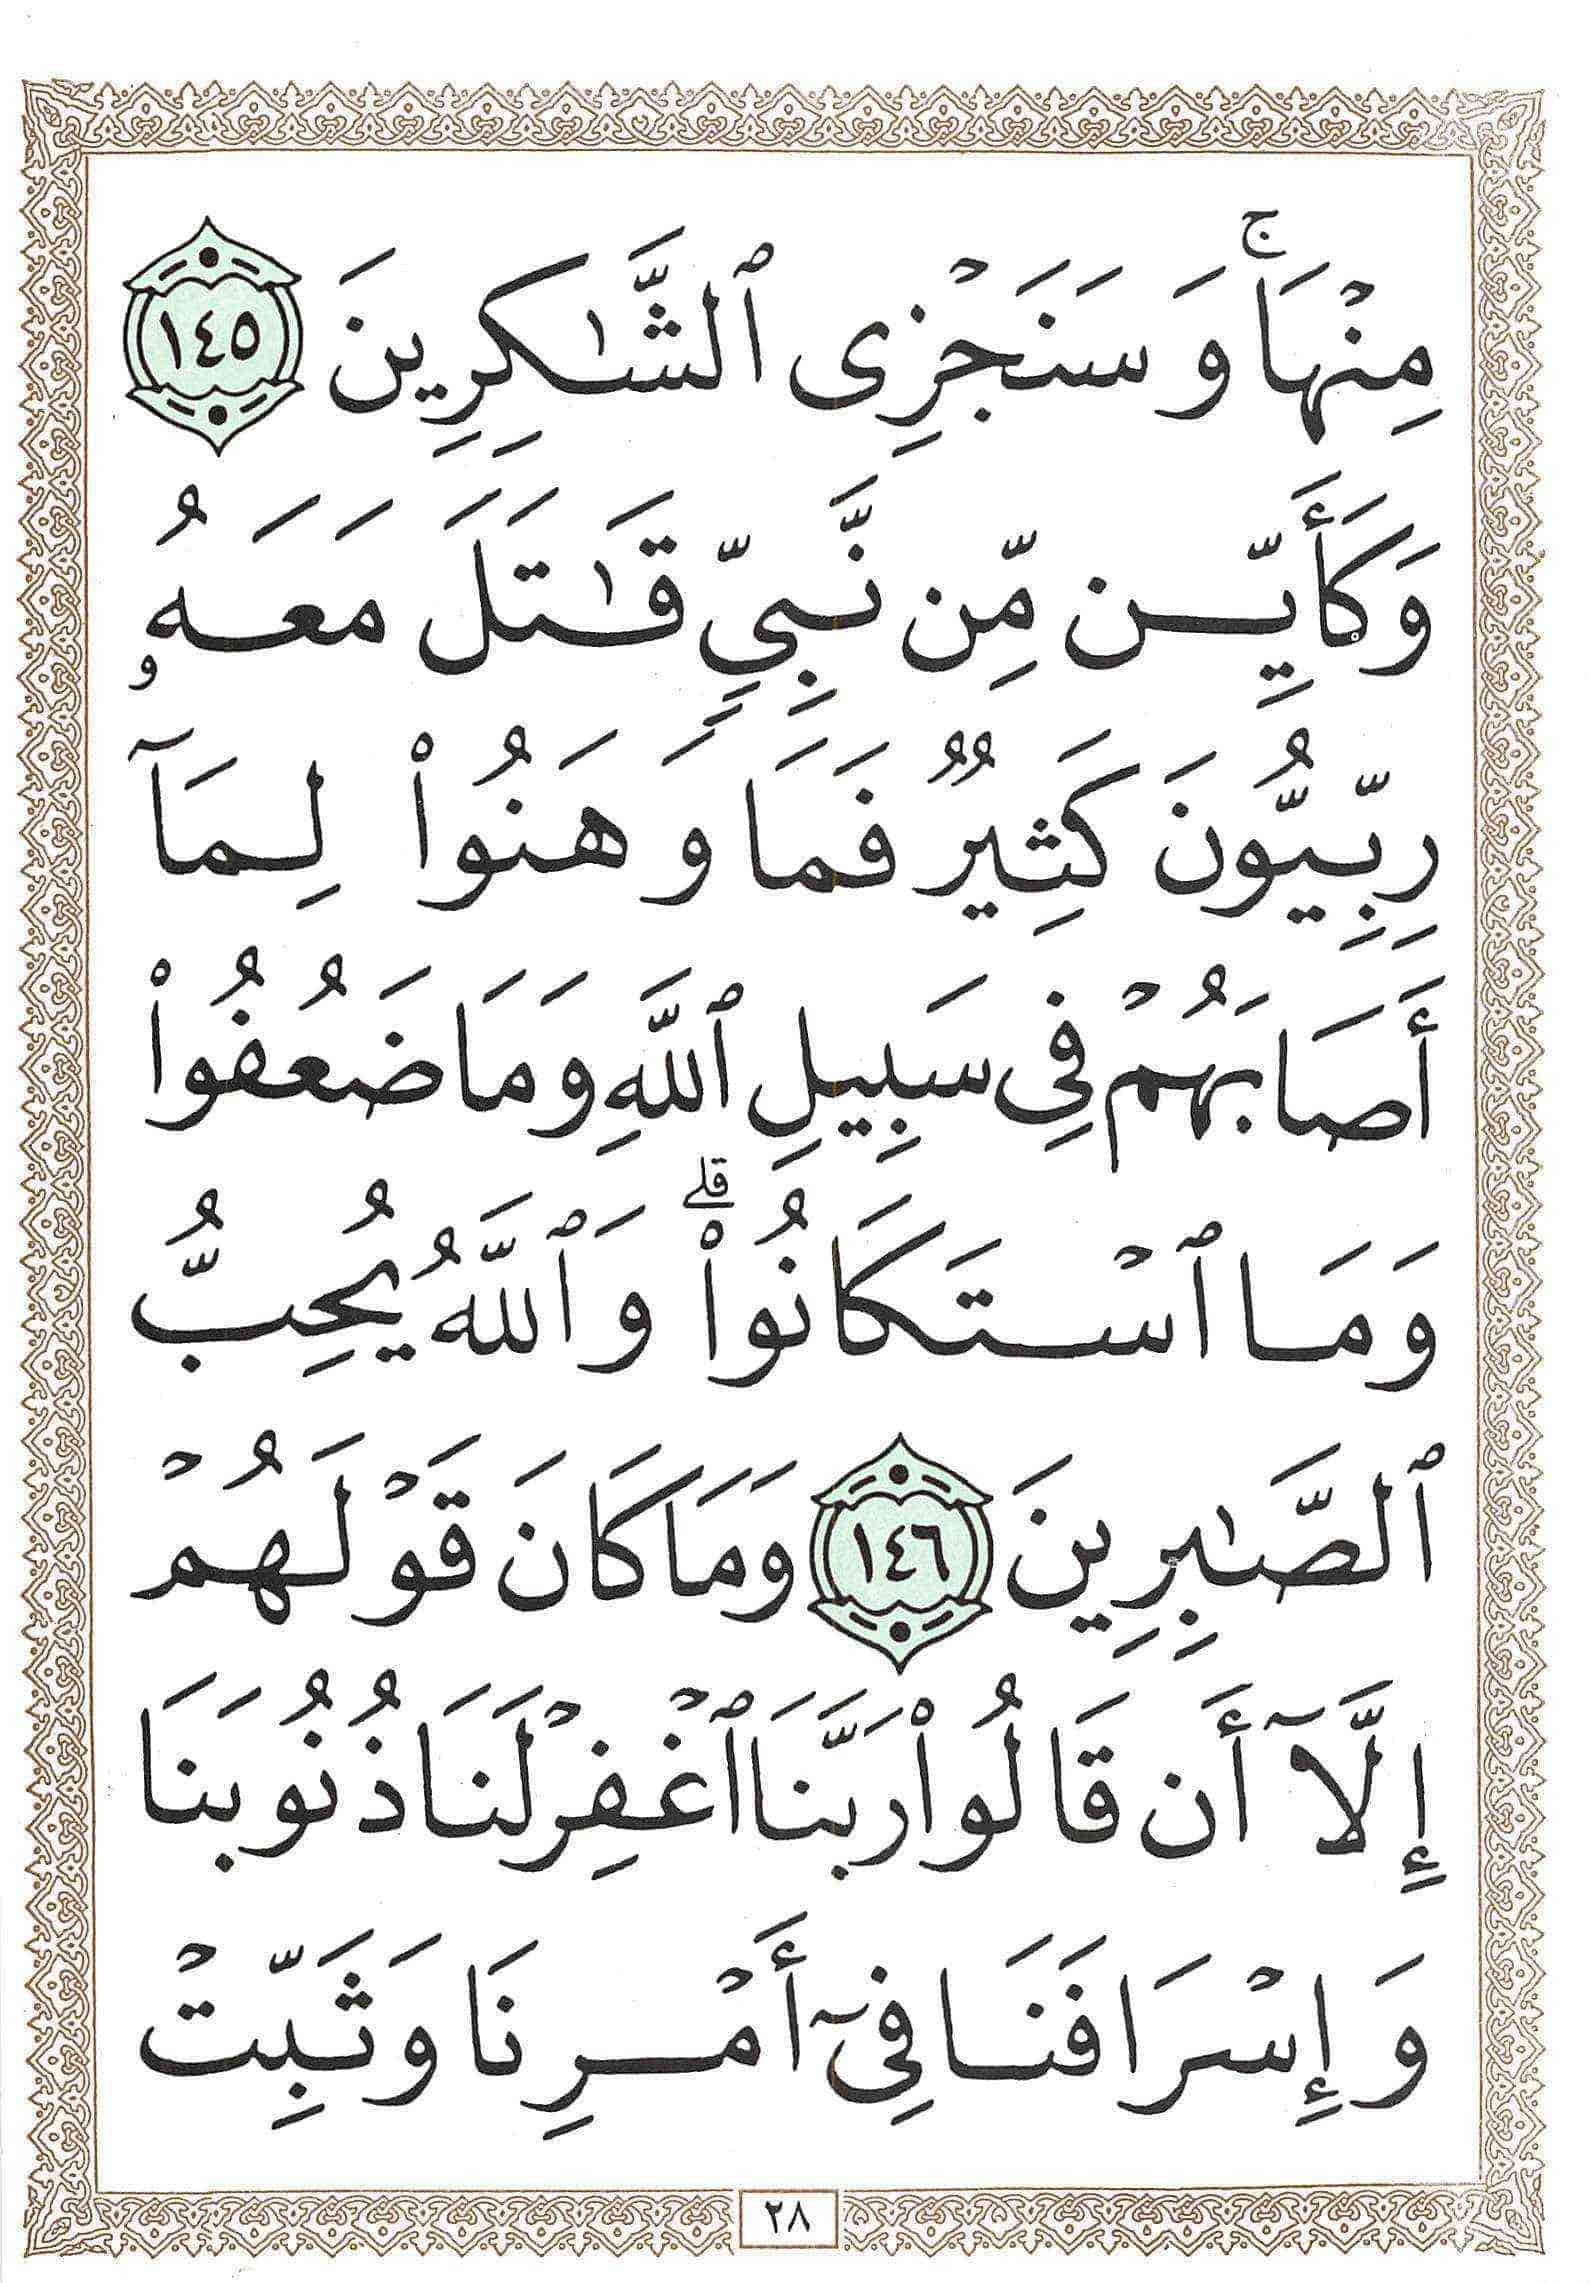 مِنْهَا ۚ وَسَنَجْزِى ٱلشَّـٰكِرِينَ ١٤٥
وَكَأَيِّن مِّن نَّبِىٍّ قَـٰتَلَ مَعَهُۥ
رِبِّيُّونَ كَثِيرٌ فَمَا وَهَنُوا۟ لِمَآ
أَصَابَهُمْ فِى سَبِيلِ ٱللَّهِ وَمَا ضَعُفُوا۟
وَمَا ٱسْتَكَانُوا۟ ۗ وَٱللَّهُ يُحِبُّ
ٱلصَّـٰبِرِينَ ١٤٦ وَمَا كَانَ قَوْلَهُمْ
إِلَّآ أَن قَالُوا۟ رَبَّنَا ٱغْفِرْ لَنَا ذُنُوبَنَا
وَإِسْرَافَنَا فِىٓ أَمْرِنَا وَثَبِّتْ
٢٨